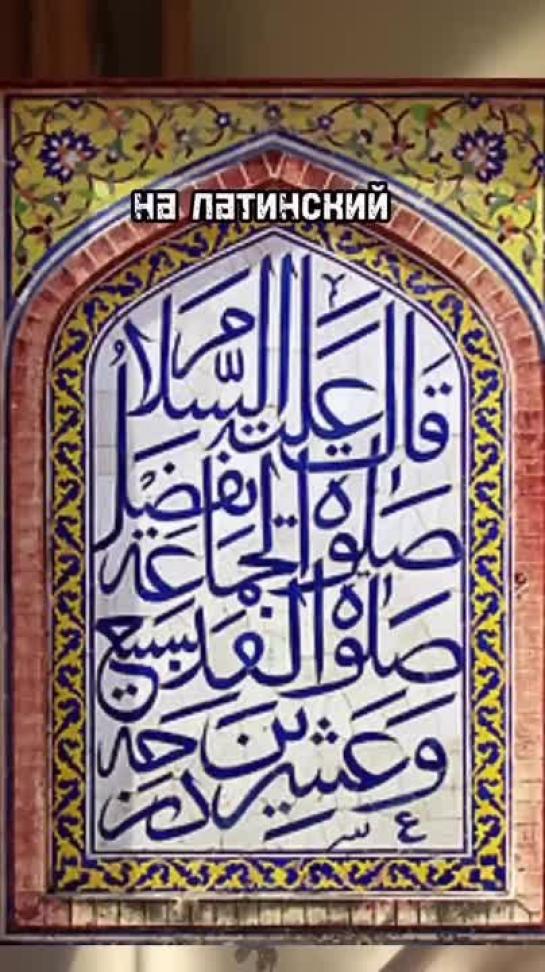 на латинский
قال عليه السلام
صلوة الجماعة تفضل
صلوة الفذ بسبع
وعشرين درجة